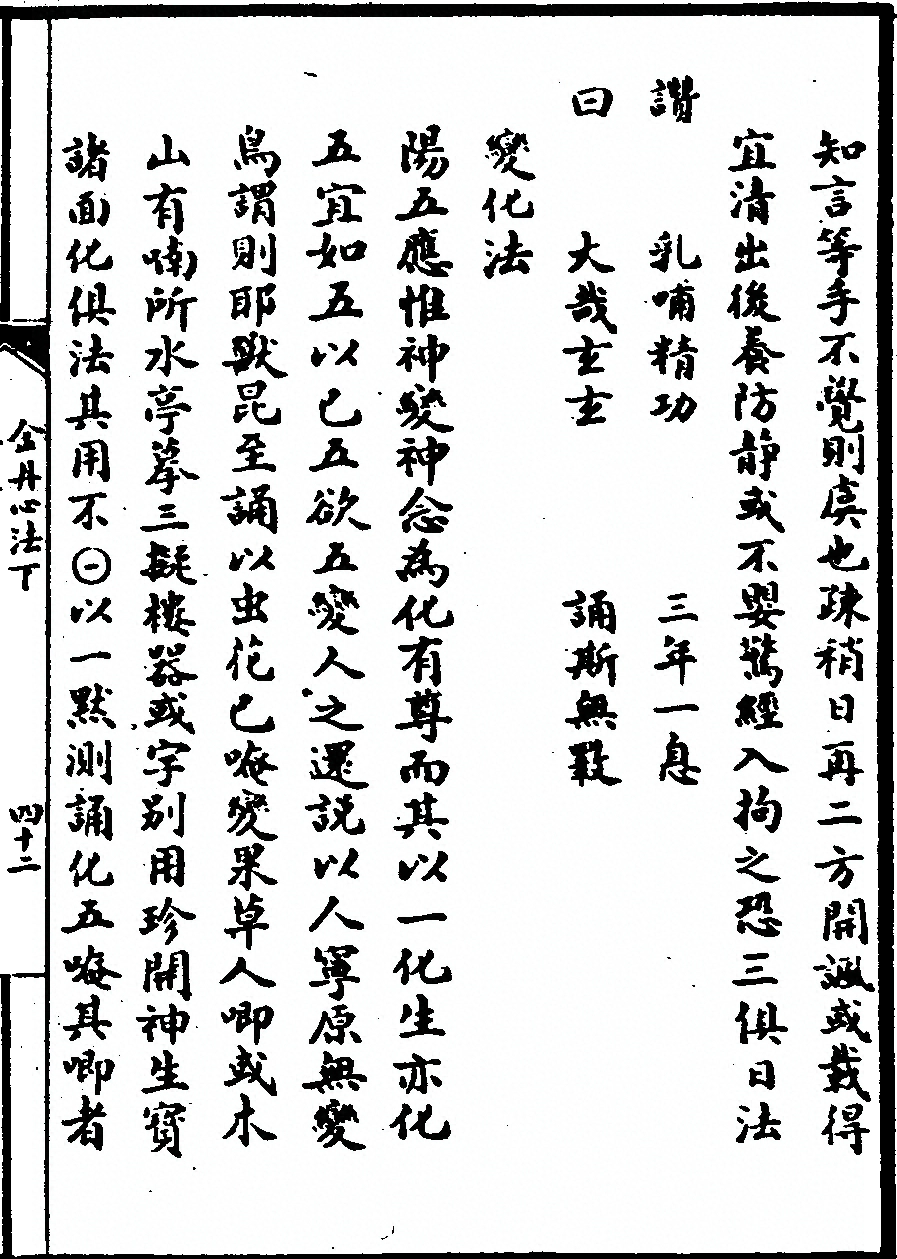 知言等手不覺則虞也疎稍日再二方開諷或載得
宜清出後養防靜或不嬰驚經入拘之恐三俱日法
讚　乳哺精功　三年一息
曰　大哉玄玄　誦斯無斁
變化法
陽五應惟神變神念為化有尊而其以一化生亦化
五宜如五以已五欲五變人之還説以人寧原無變
鳥謂則耶獸昆至誦以虫花已唵變果草人唧或木
山有喃所水亭摹三擬樓器或字別用珍開神生寶
諸面化俱法其用不㊀以一默測誦化五唵其唧者
金丹心法下　四十二